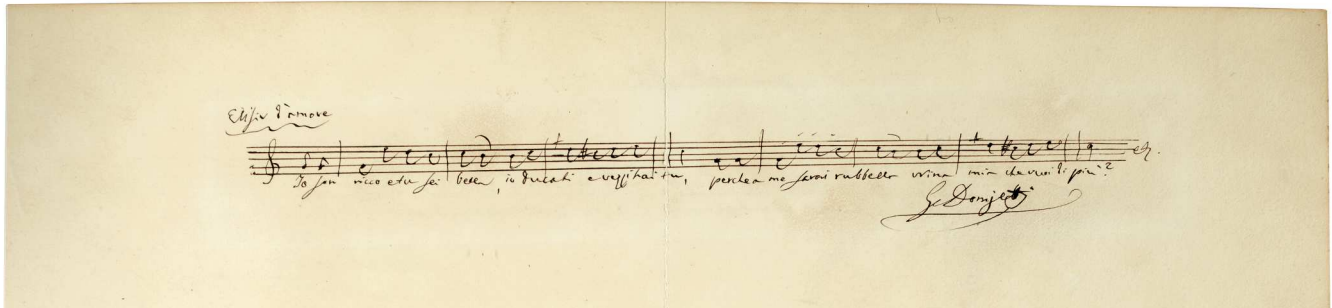 Elisir d'amore
Io son ricco e tu sei bella, io ducati e vezzi hai tu, perchè a me sarai rubbella Nina mia che vuoi di più?
G Donizetti